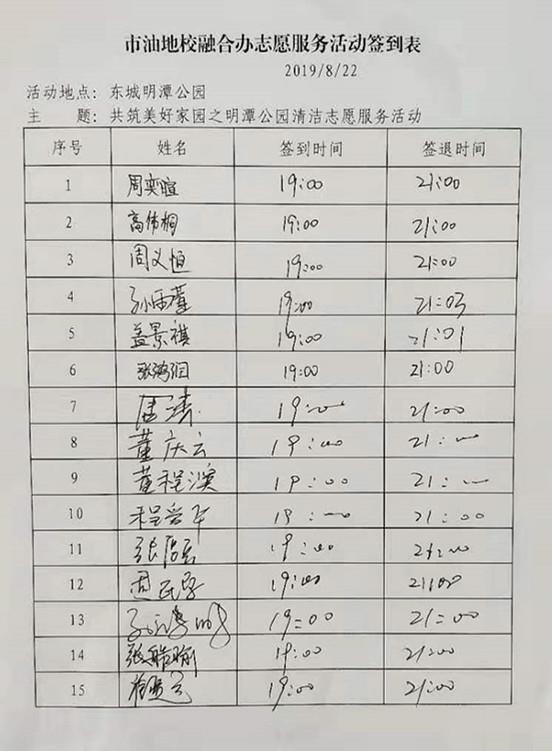 市油地校融合办志愿服务活动签到表
2019/8/22
活动地点：东城明潭公园
主 题：共筑美好家园之明潭公园清洁志愿服务活动
序号 姓名 签到时间 签退时间
1 周奕暄 19:00 21:00
2 高伟桐 19:00 21:00
3 周义恒 19:00 21:00
4 19:00 21:03
5 盖景祺 19:00 21:01
6 19:00 21:00
7 19:00 21:00
8 董庆云 19:00 21:00
9 董程滨 19:00 21:00
10 19:00 21:00
11 19:00 21:00
12 19:00 21:00
13 19:00 21:00
14 19:00 21:00
15 19:00 21:00